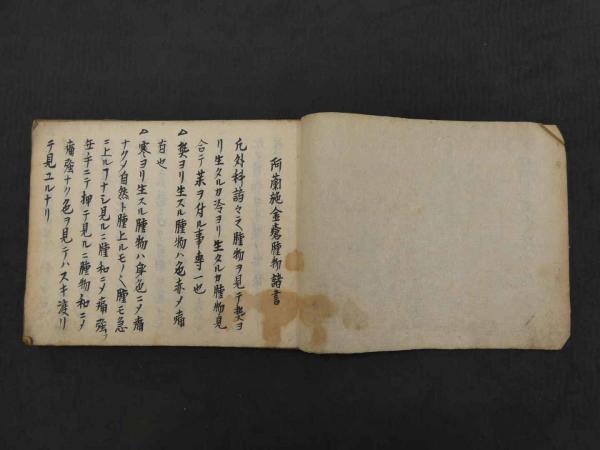 阿蘭施金瘡腫物諸書
凡外科諸々之腫物ヲ見テ熱ヨ
リ生タルカ冷ヨリ生タルカ腫物見
合テ薬ヲ付ル事専一也
△熱ヨリ生スル腫物ハ色赤メ痛
有也
△寒ヨリ生スル腫物ハ身色ニメ痛
ナクメ自然ト腫上ルモノ也腫モ急
ニ上ルヿナシ見ルニ腫和ニメ痛強ク
無手ニテ押テ見ルニ腫物和ニメ
痛強ナク色ヲ見テハスキ渡リ
テ見ユルナリ